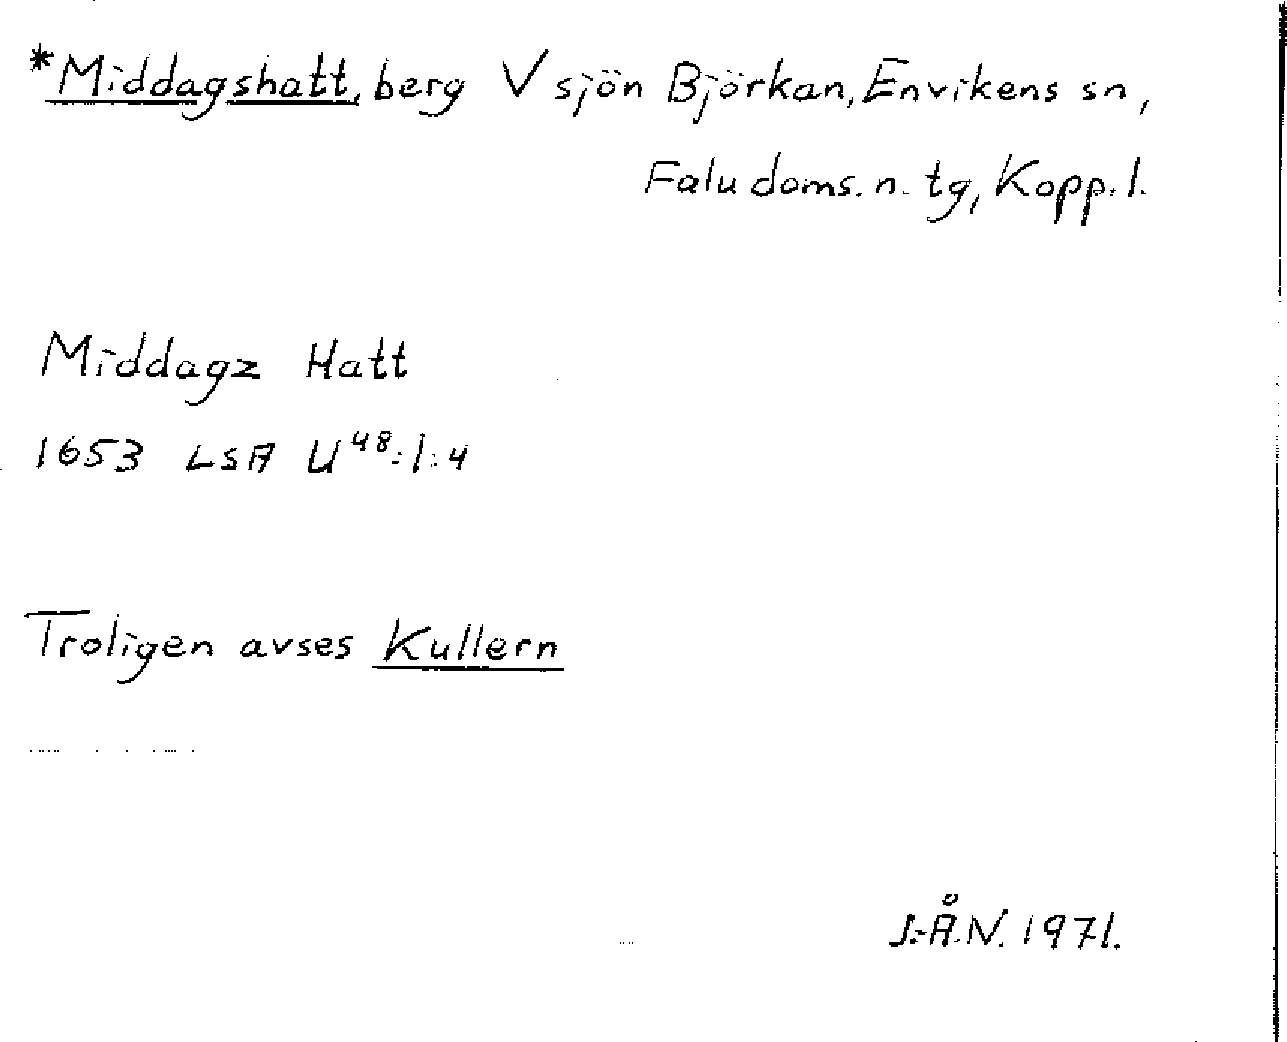 *Middagshatt, berg V sjön Björkan, Envikens sn,
Falu doms. n. tg, Kopp. l.
Middagz Hatt
1653 LSA U48:1:4
Troligen avses Kullern
J.-Å.N. 1971.